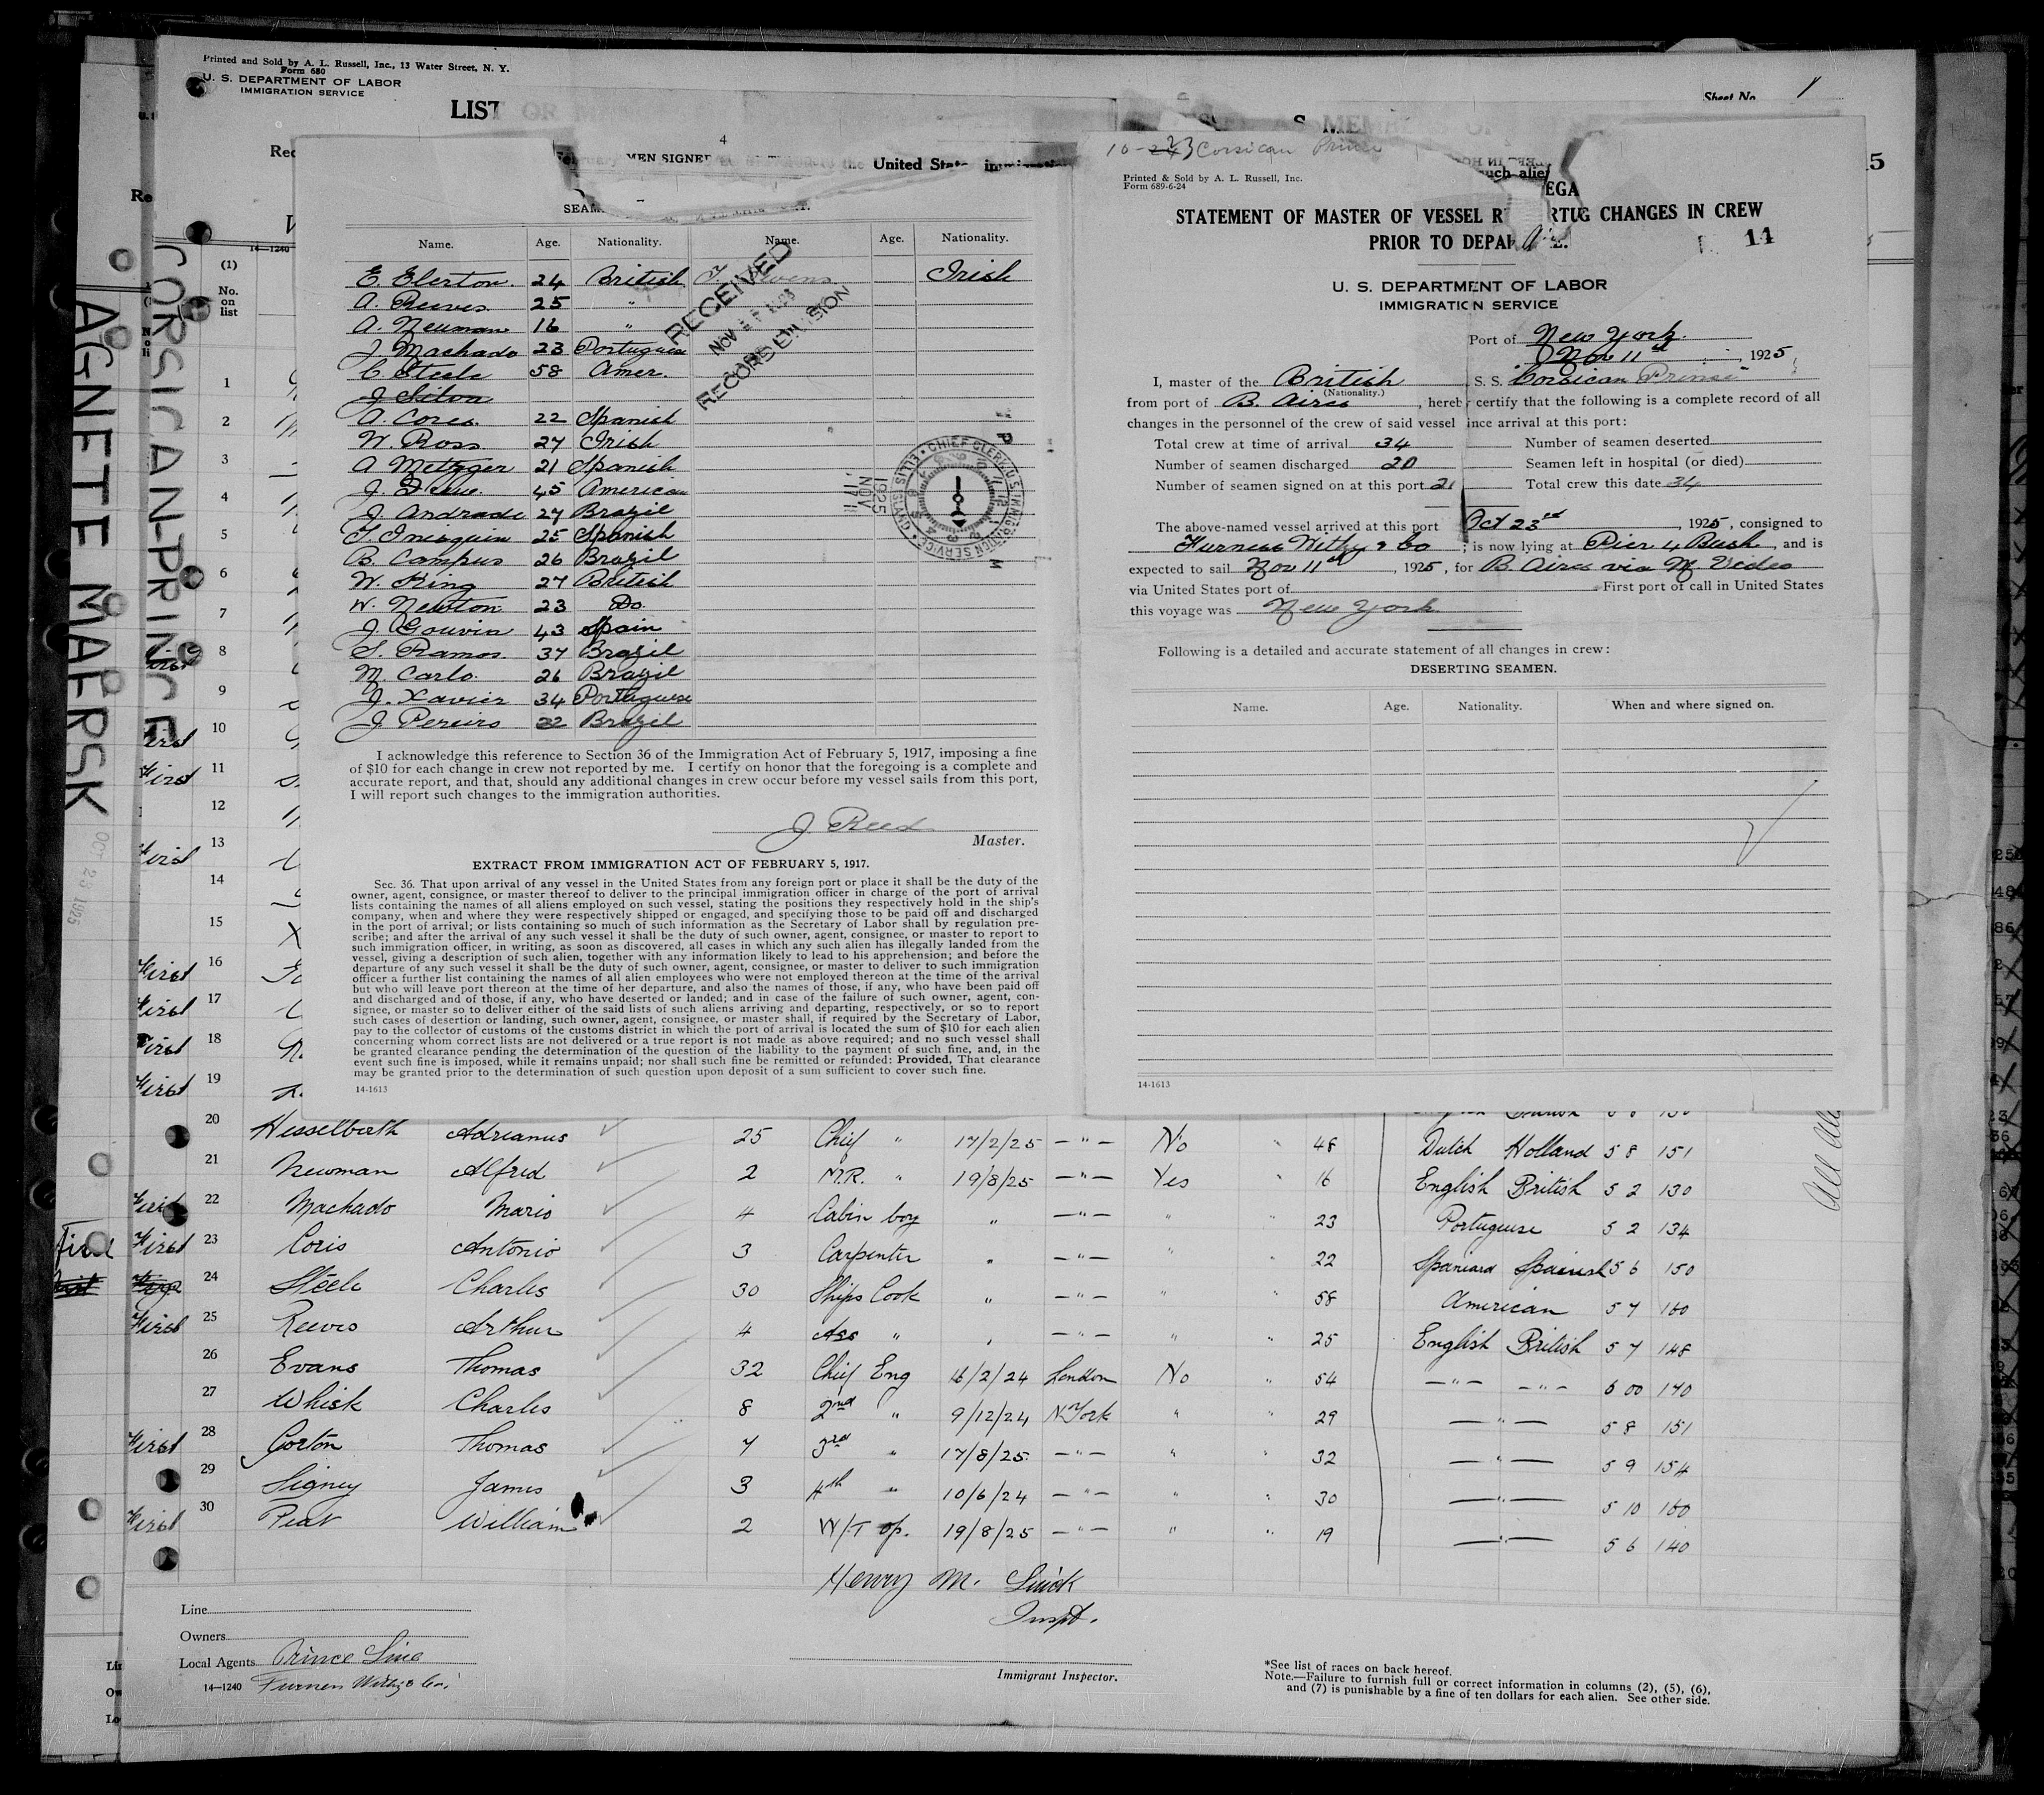 Printed and Sold by A. L. Russell, Inc., 13 Water Street, N. Y.
Form 680
U. S. DEPARTMENT OF LABOR
IMMIGRATION SERVICE
LIST
Sheet No. 1
CORSICAN-PRINCE
AGNETE MAERSK
OCT 23 1925
14-1240
(1)
No. on list
4
MEN SIGNED
the United State
Name. Age. Nationality. Name. Age. Nationality.
E. Elerton 24 British Irish
A. Reeves 25 "
A. Neuman 16 "
J. Machado 23 Portuguese
C. Steele 58 Amer.
J. Silva
A. Cores. 22 Spanish
W. Ross 27 Irish
A Metzger 21 Spanish
J. 45 American
J. Andrade 27 Brazil
25 Spanish
B. Campus 26 Brazil
W. King 27 British
W. Newton 23 Do.
J. Gouvin 43 Spain
S. Ramos 37 Brazil
M. Carlo. 26 Brazil
J. Xavier 34 Portuguese
J. Pereiro 22 Brazil
RECEIVED
NOV
RECORDS DIVISION
CHIEF CLERK U.S. IMMIGRATION SERVICE
1925
NOV
11
I acknowledge this reference to Section 36 of the Immigration Act of February 5, 1917, imposing a fine
of $10 for each change in crew not reported by me. I certify on honor that the foregoing is a complete and
accurate report, and that, should any additional changes in crew occur before my vessel sails from this port,
I will report such changes to the immigration authorities.
J. Reed
Master.
EXTRACT FROM IMMIGRATION ACT OF FEBRUARY 5, 1917.
Sec. 36. That upon arrival of any vessel in the United States from any foreign port or place it shall be the duty of the
owner, agent, consignee, or master thereof to deliver to the principal immigration officer in charge of the port of arrival
lists containing the names of all aliens employed on such vessel, stating the positions they respectively hold in the ship's
company, when and where they were respectively shipped or engaged, and specifying those to be paid off and discharged
in the port of arrival; or lists containing so much of such information as the Secretary of Labor shall by regulation pre-
scribe; and after the arrival of any such vessel it shall be the duty of such owner, agent, consignee, or master to report to
such immigration officer, in writing, as soon as discovered, all cases in which any such alien has illegally landed from the
vessel, giving a description of such alien, together with any information likely to lead to his apprehension; and before the
departure of any such vessel it shall be the duty of such owner, agent, consignee, or master to deliver to such immigration
officer a further list containing the names of all alien employees who were not employed thereon at the time of the arrival
but who will leave port thereon at the time of her departure, and also the names of those, if any, who have been paid off
and discharged and of those, if any, who have deserted or landed; and in case of the failure of such owner, agent, con-
signee, or master so to deliver either of the said lists of such aliens arriving and departing, respectively, or so to report
such cases of desertion or landing, such owner, agent, consignee, or master shall, if required by the Secretary of Labor,
pay to the collector of customs of the customs district in which the port of arrival is located the sum of $10 for each alien
concerning whom correct lists are not delivered or a true report is not made as above required; and no such vessel shall
be granted clearance pending the determination of the question of the liability to the payment of such fine, and, in the
event such fine is imposed, while it remains unpaid; nor shall such fine be remitted or refunded: Provided, That clearance
may be granted prior to the determination of such question upon deposit of a sum sufficient to cover such fine.
14-1613
Corsican Prince
Printed & Sold by A. L. Russell, Inc.
Form 689-6-24
such alien
STATEMENT OF MASTER OF VESSEL R RTIG CHANGES IN CREW
PRIOR TO DEPAR E.
11
U. S. DEPARTMENT OF LABOR
IMMIGRATION SERVICE
Port of New York
Nov 11th, 1925
I, master of the British S. S. Corsican Prince
(Nationality.)
from port of B. Aires, hereby certify that the following is a complete record of all
changes in the personnel of the crew of said vessel since arrival at this port:
Total crew at time of arrival 34 Number of seamen deserted
Number of seamen discharged 20 Seamen left in hospital (or died)
Number of seamen signed on at this port 21 Total crew this date 34
The above-named vessel arrived at this port Oct 23rd, 1925, consigned to
Furness Withy & Co; is now lying at Pier 4 Bush, and is
expected to sail Nov 11th, 1925, for B. Aires via M. Video
via United States port of First port of call in United States
this voyage was New York
Following is a detailed and accurate statement of all changes in crew:
DESERTING SEAMEN.
Name. Age. Nationality. When and where signed on.
14-1613
1
2
3
4
5
6
7
8
9
10 First
11 First
12
13 First
14
15
16 First
17 First
18 First
19 First
20 Hesselberth Adrianus 25 Chief " 17/2/25 -"- No " 48 Dutch Holland 5 8 151
21 Newman Alfred 2 M.R. " 19/8/25 -"- Yes " 16 English British 5 2 130
First 22 Machado Mario 4 Cabin boy " -"- " " 23 Portuguese 5 2 134
First 23 Coris Antonio 3 Carpenter " -"- " 22 Spaniard Spanish 5 6 150
24 Steele Charles 30 Ships Cook " -"- " " 58 American 5 7 160
First 25 Reeves Arthur 4 Ass " " -"- " " 25 English British 5 7 148
26 Evans Thomas 32 Chief Eng 16/2/24 London No " 54 -"- -"- 6 00 170
27 Whisk Charles 8 2nd " 9/12/24 N.York " " 29 -"- 5 8 151
First 28 Gorton Thomas 7 3rd " 17/8/25 -"- " " 32 -"- 5 9 154
29 Signey James 3 4th " 10/6/24 -"- " " 30 -"- 5 10 160
First 30 Peat William 2 W/T op. 19/8/25 -"- " " 19 -"- 5 6 140
Henry M.
Inspt.
Line
Owners
Local Agents Prince Line
14-1240 Furness Withy & Co.
Immigrant Inspector.
*See list of races on back hereof.
Note.—Failure to furnish full or correct information in columns (2), (5), (6),
and (7) is punishable by a fine of ten dollars for each alien. See other side.